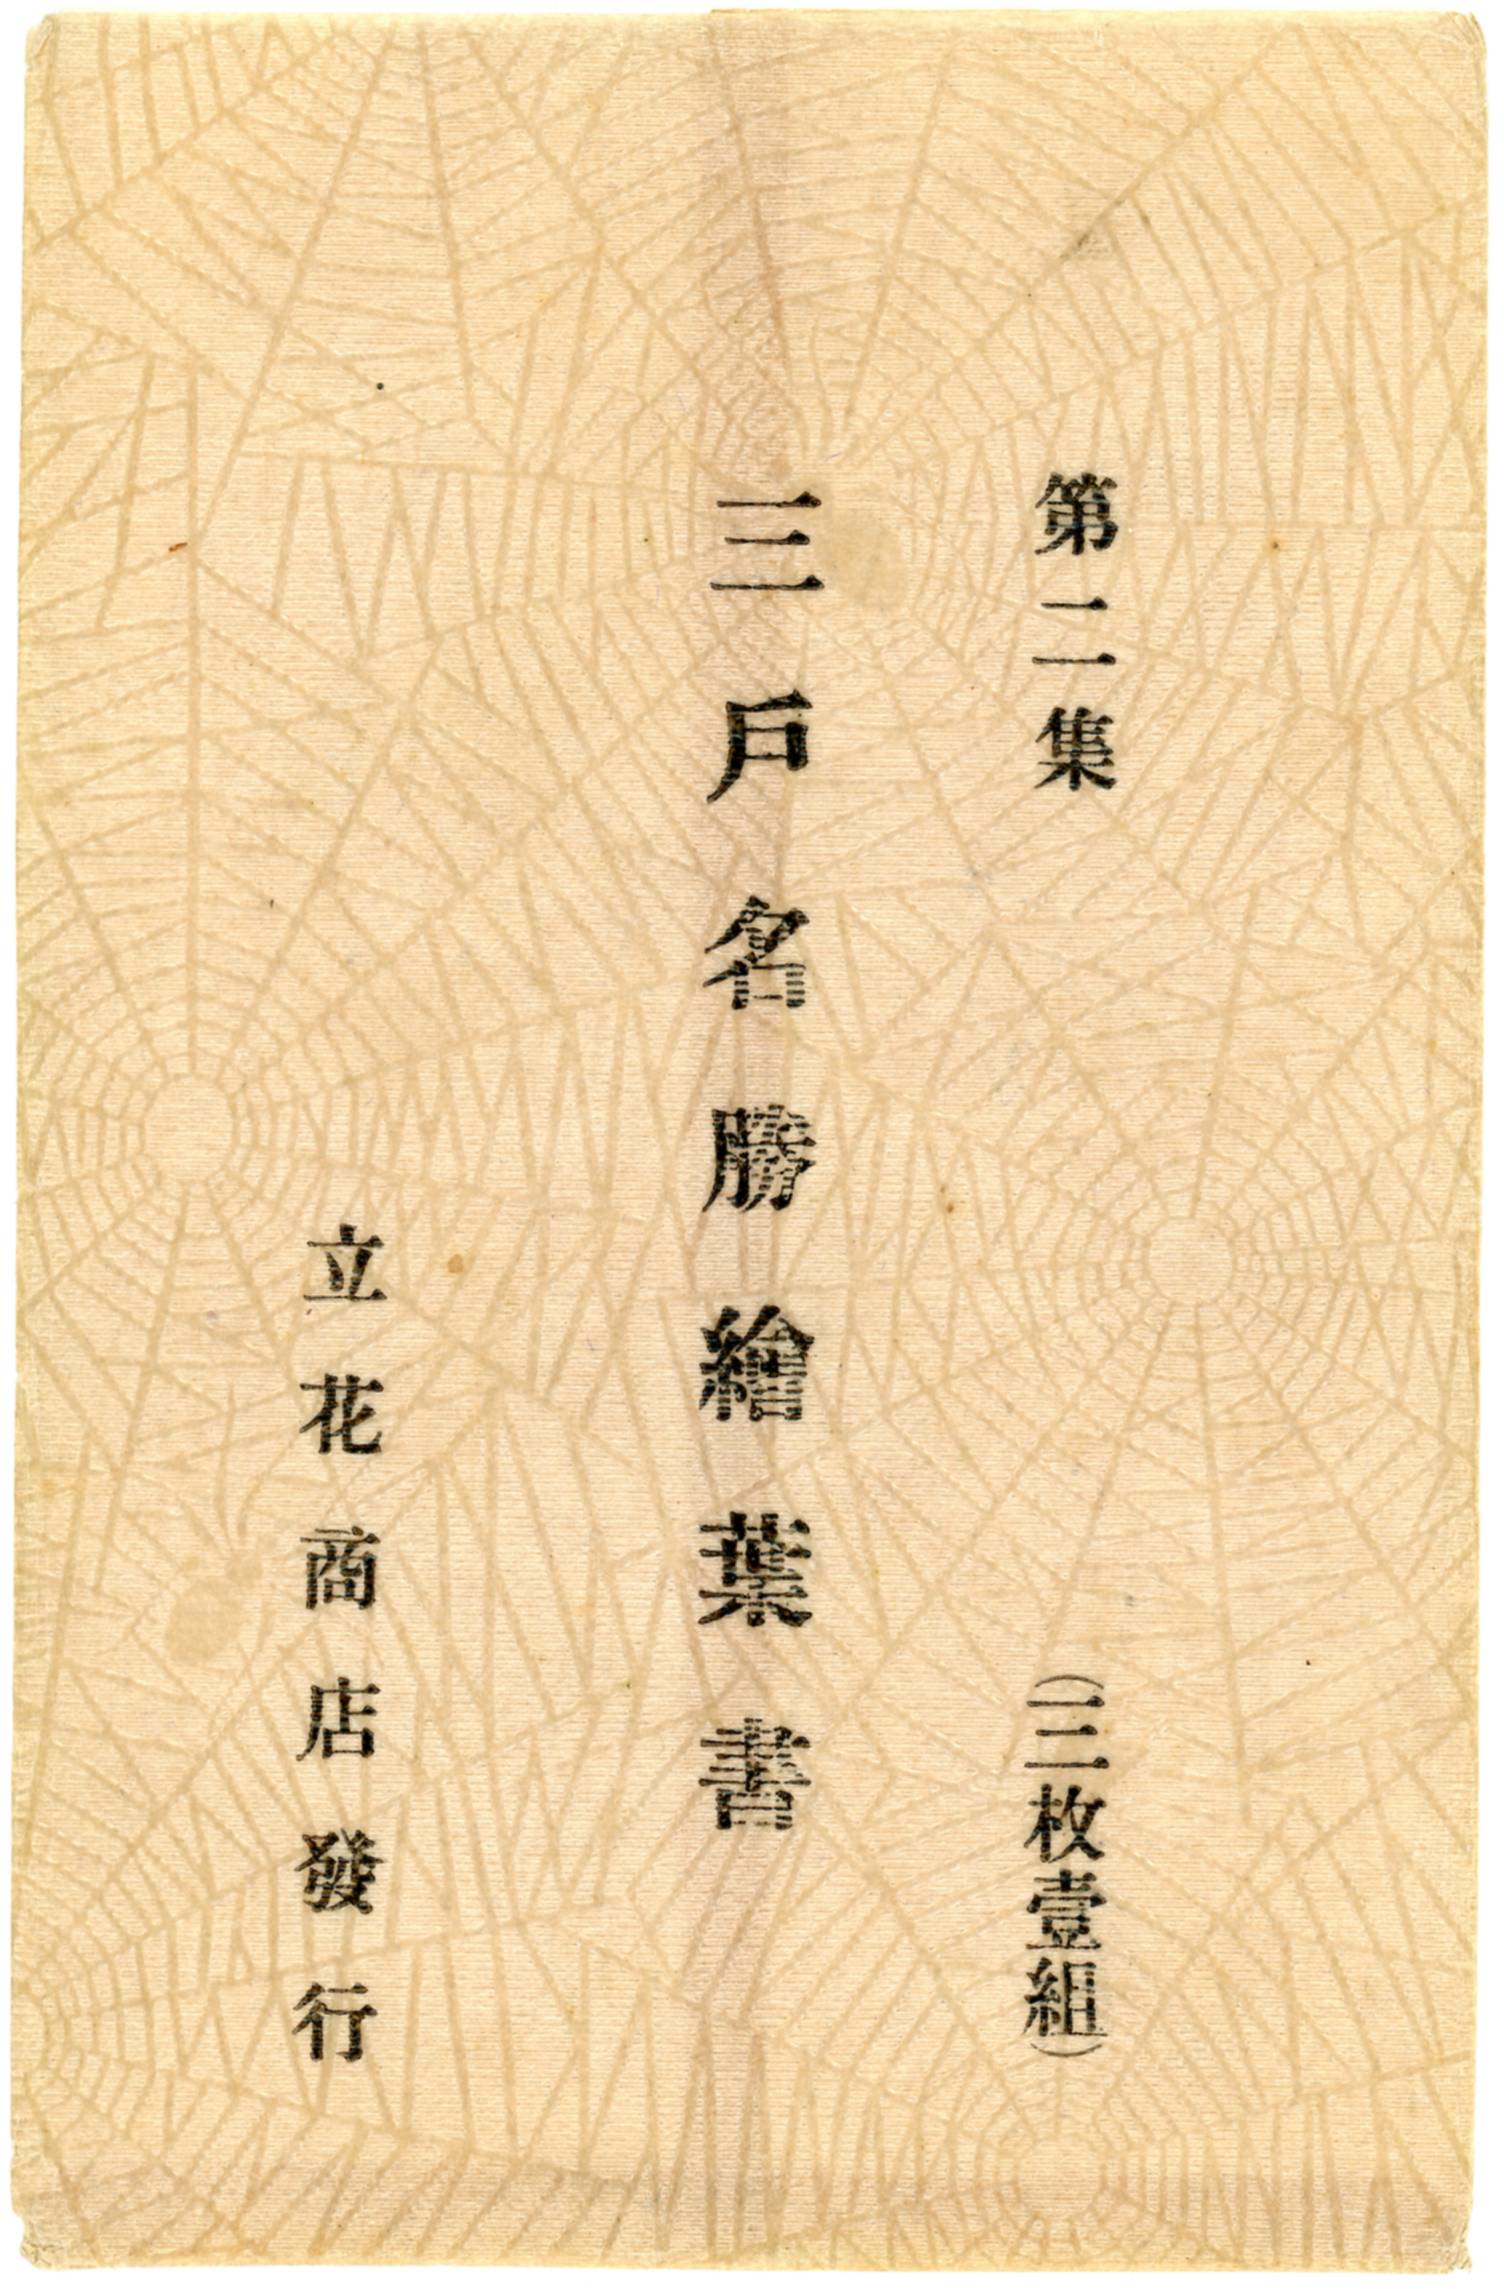 第二集 (三枚壹組)
三戶名勝繪葉書
立花商店發行